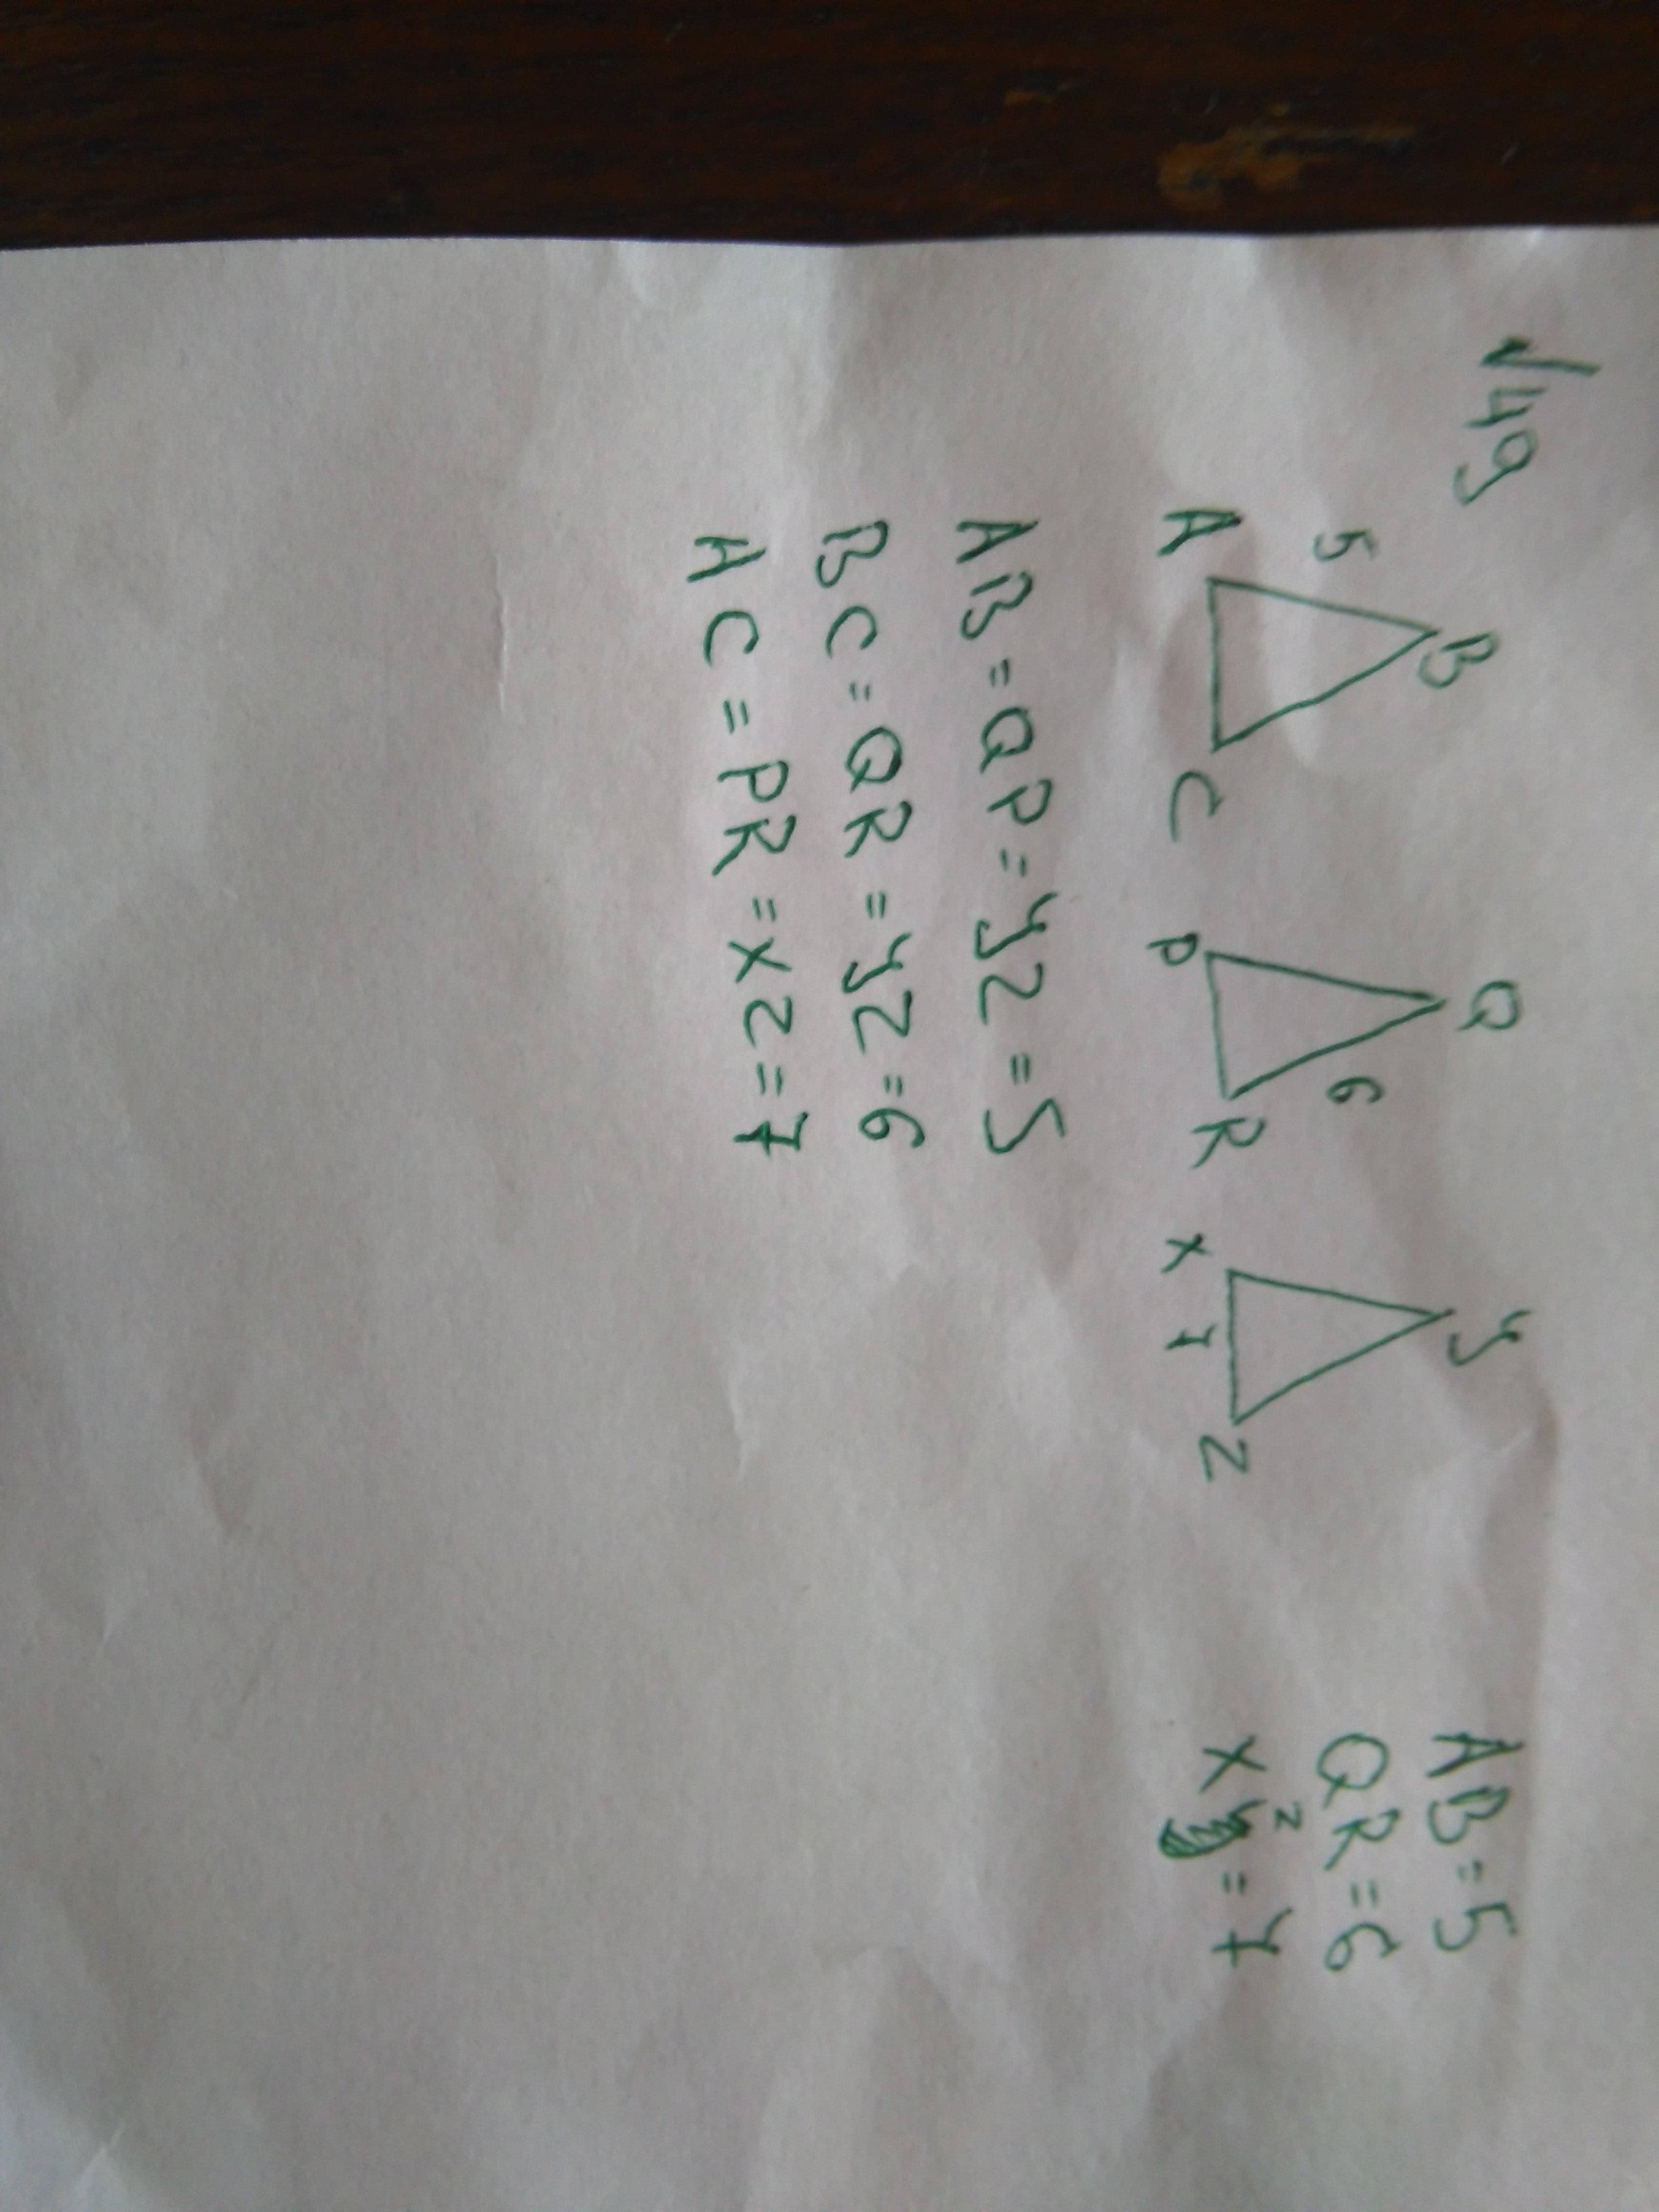 √49
B Q y
5 6
A C P R x 7 z
AB = 5
QR = 6
xz = 7
AB = QP = yz = 5
BC = QR = yz = 6
AC = PR = xz = 7